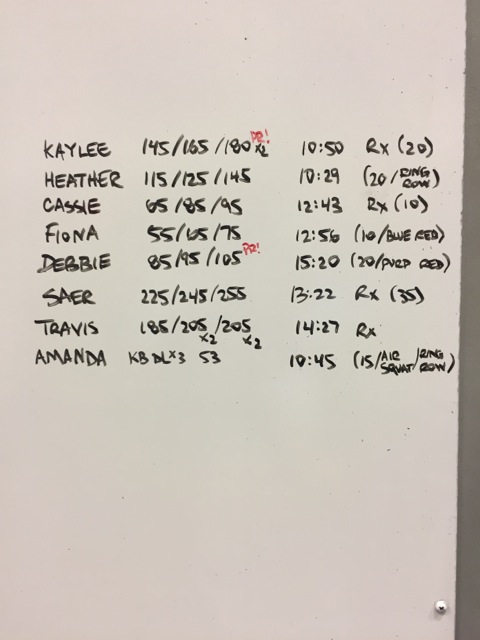 KAYLEE 145/165/180 x2 PR! 10:50 Rx (20)
HEATHER 115/125/145 10:29 (20/RING ROW)
CASSIE 65/85/95 12:43 Rx (10)
FIONA 55/65/75 12:56 (10/BLUE RED)
DEBBIE 85/95/105 PR! 15:20 (20/PURP RED)
SAER 225/245/255 13:22 Rx (35)
TRAVIS 185/205 x2/205 x2 14:27 Rx
AMANDA KB DL x3 53 10:45 (15/AIR SQUAT/RING ROW)